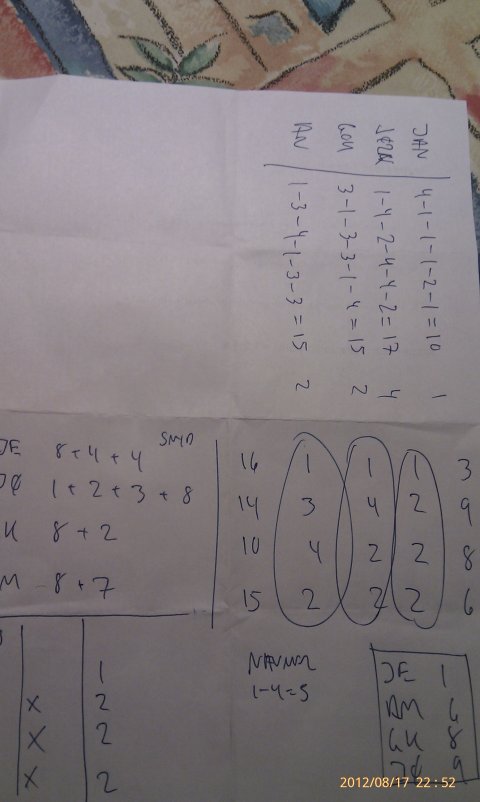 JAN 4-1-1-1-2-1=10 1
1-4-2-4-4-2=17 4
3-1-3-3-1-4=15 2
1-3-4-1-3-3=15 2
SMYD
8+4+4
1+2+3+8
8+2
8+7
16 1 1 1 3
14 3 4 2 9
10 4 2 2 8
15 2 2 2 6
1-4=5
JE 1
8
9
1
X 2
X 2
X 2
2012/08/17 22:52